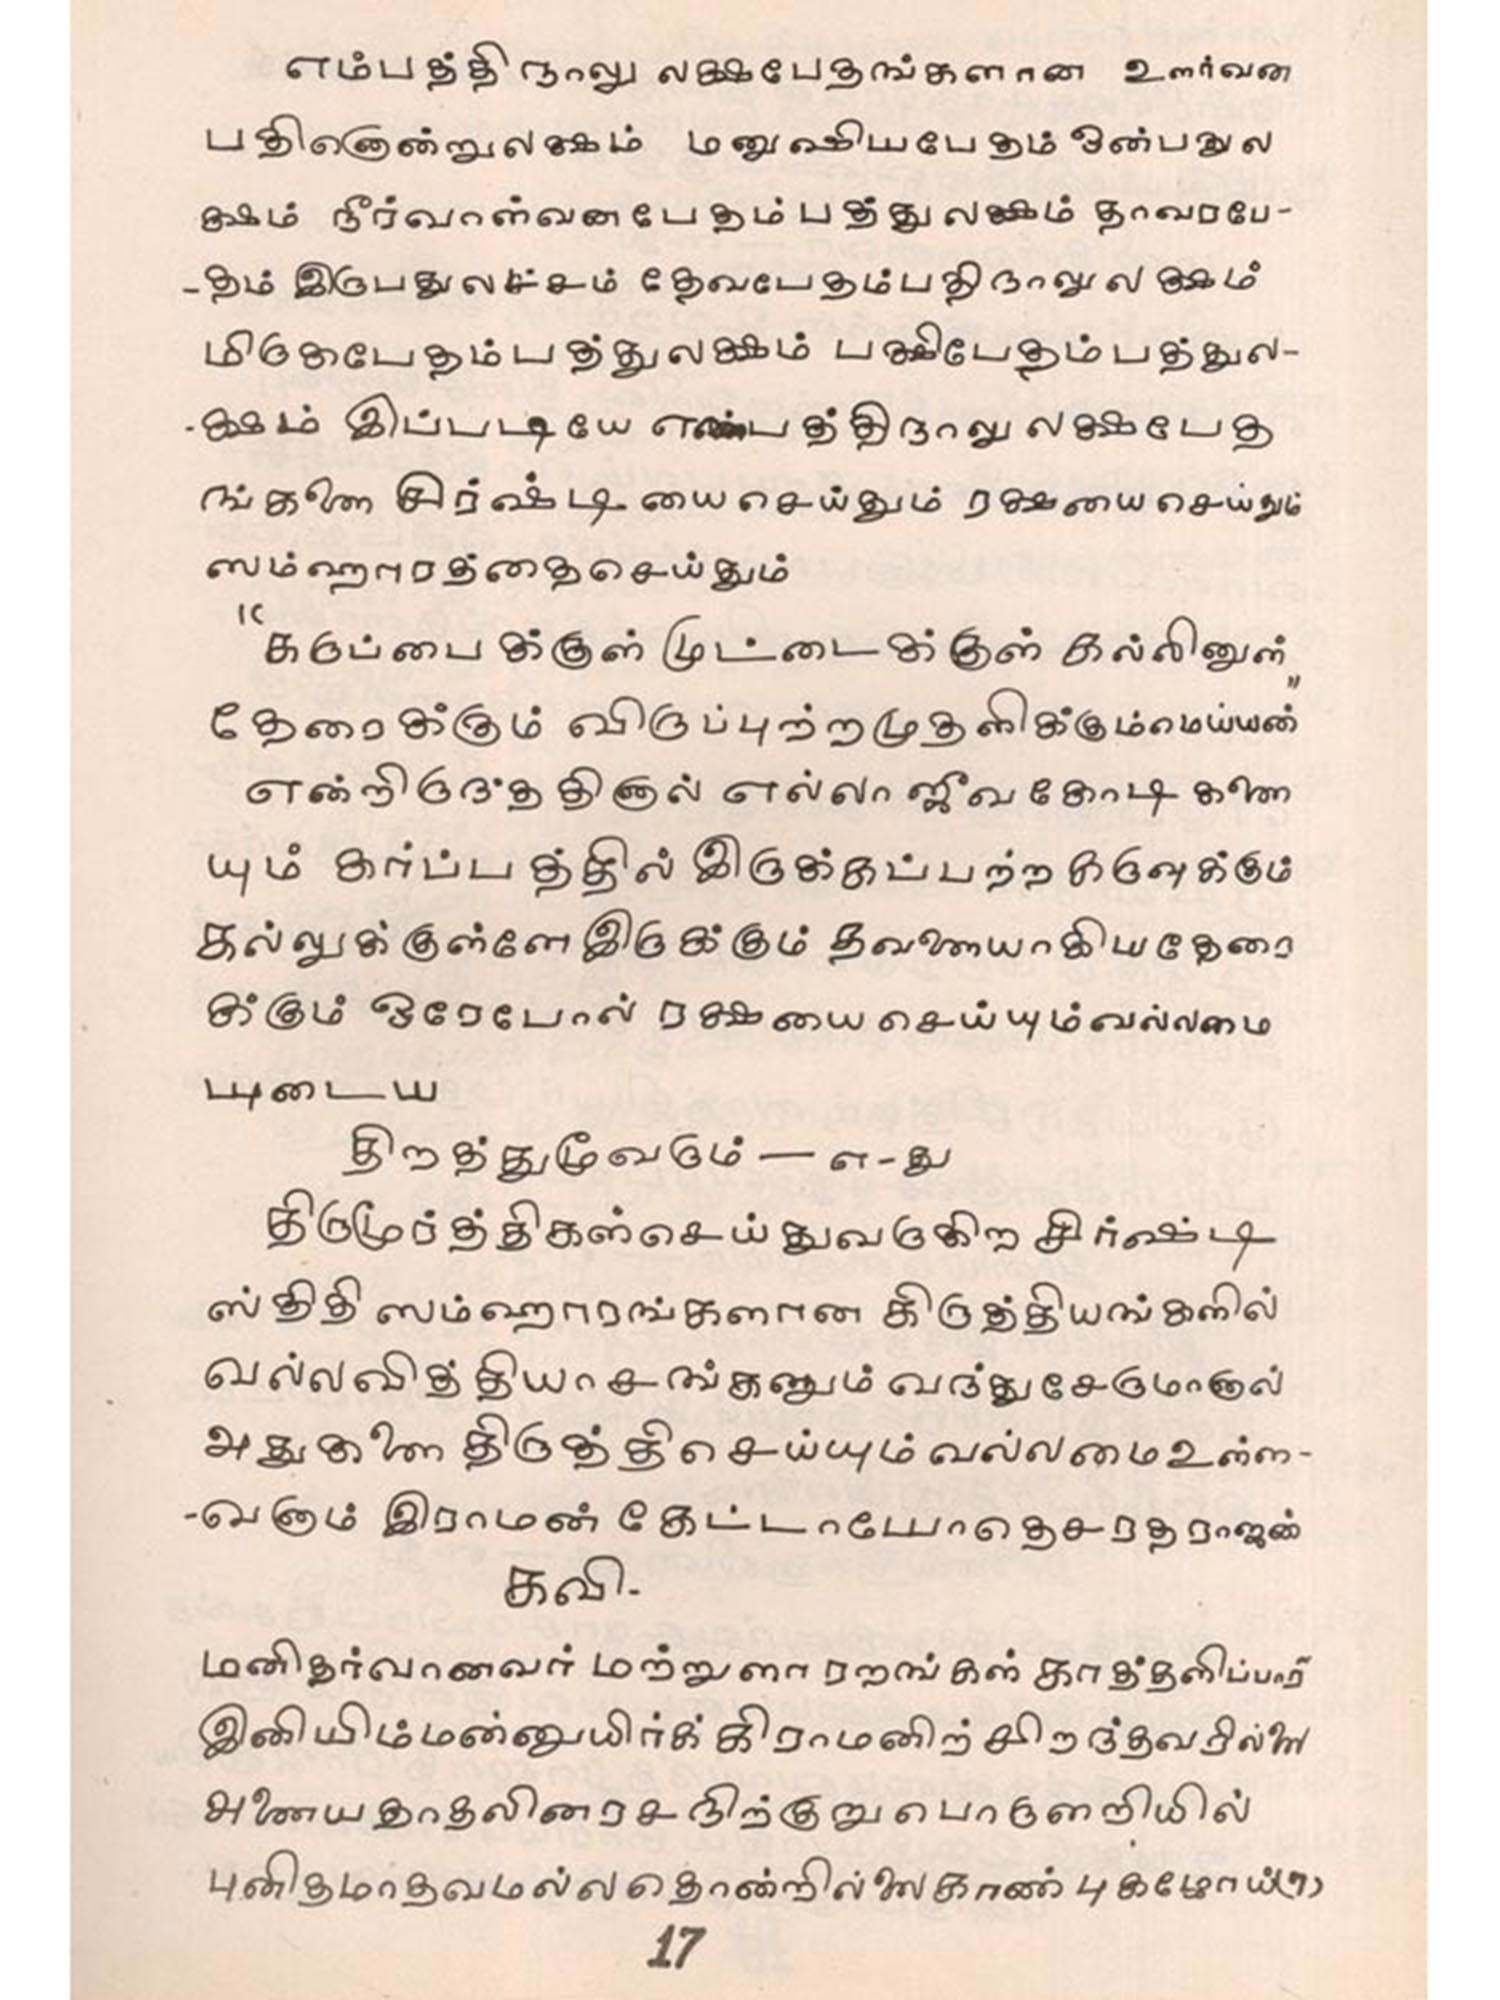 எம்பத்தி நாலு லக்ஷபேதங்களான ஊர்வன
பதினொன்றுலக்ஷம் மனுஷியபேதம் ஒன்பதுல
க்ஷம் நீர்வாள்வனபேதம் பத்துலக்ஷம் தாவரபே-
-தம் இருபதுலட்சம் தேவபேதம்பதிநாலுலக்ஷம்
மிருகபேதம்பத்துலக்ஷம் பக்ஷிபேதம்பத்துல-
-க்ஷம் இப்படியே எண்பத்திநாலு லக்ஷபேத
ங்களை சிர்ஷ்டியை செய்தும் ரக்ஷயை செய்தும்
ஸம்ஹாரத்தை செய்தும்
"கருப்பைக்குள் முட்டைக்குள் கல்லினுள்
தேரைக்கும் விருப்புற்றமுதளிக்கும்மெய்யன்"
என்றிருந்ததினால் எல்லா ஜீவகோடிகளை
யும் கர்ப்பத்தில் இருக்கப்பற்ற கருவுக்கும்
கல்லுக்குள்ளே இருக்கும் தவளையாகிய தேரை
க்கும் ஒரேபோல் ரக்ஷயை செய்யும் வல்லமை
யுடைய
திறத்துமூவரும் — எ-து
திருமூர்த்திகள்செய்துவருகிற சிர்ஷ்டி
ஸ்திதி ஸம்ஹாரங்களான கிருத்தியங்களில்
வல்லவித்தியாசங்களும் வந்துசேருமானால்
அதுகளை திருத்திசெய்யும் வல்லமை உள்ள-
-வனும் இராமன் கேட்டாயோ தெசரதராஜன்
கவி-
மனிதர்வானவர் மற்றுளா ரறங்கள் காத்தளிப்பார்
இனியிம்மன்னுயிர்க் கிராமனிற் சிறந்தவரில்லை
அனையதாதலினரச நிற்குறு பொருளறியில்
புனிதமாதவமல்ல தொன்றில்லை காண் புகழோய்(௭)
17